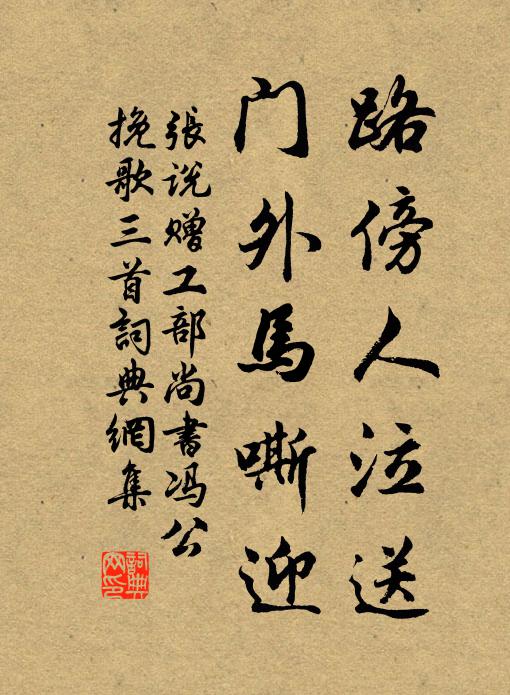 路傍人泣送
门外馬嘶迎
張说赠工部尚書冯公
挽歌三首詞典網集
詞典
网印